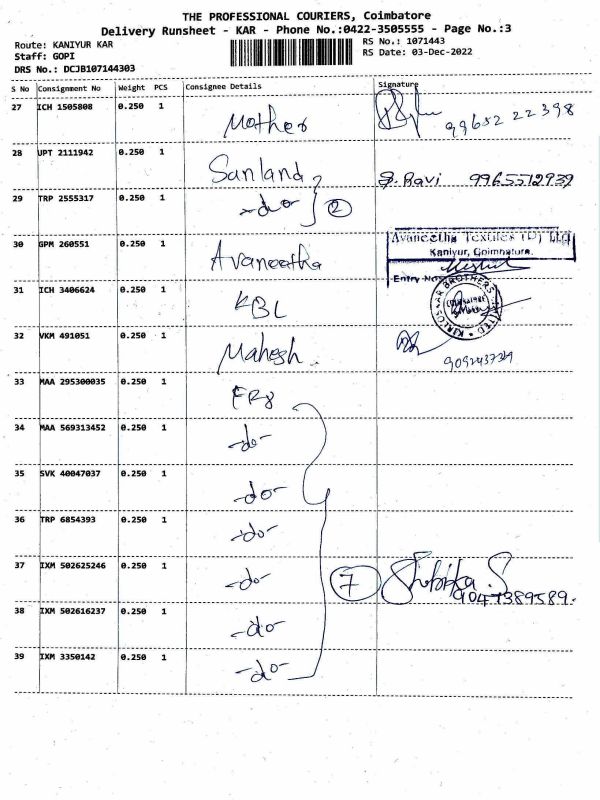 THE PROFESSIONAL COURIERS, Coimbatore
Delivery Runsheet - KAR - Phone No.:0422-3505555 - Page No.:3
Route: KANIYUR KAR
RS No.: 1071443
Staff: GOPI
RS Date: 03-Dec-2022
DRS No.: DCJB107144303
S No Consignment No Weight PCS Consignee Details Signature
27 ICH 1505808 0.250 1 Mother 99652 22398
28 UPT 2111942 0.250 1 Sanland S. Ravi 9965512939
29 TRP 2555317 0.250 1 -do- 2
30 GPM 260551 0.250 1 Avaneetha
Avaneetha Textiles (P) Ltd
Kaniyur, Coimbatore.
Entry No
31 ICH 3406624 0.250 1 KBL
KIRLOSKAR BROTHERS LIMITED
32 VKM 491051 0.250 1 Mahesh
33 MAA 295300035 0.250 1
34 MAA 569313452 0.250 1 -do-
35 SVK 40047037 0.250 1 -do-
36 TRP 6854393 0.250 1 -do-
37 IXM 502625246 0.250 1 -do- 7 9047389589.
38 IXM 502616237 0.250 1 -do-
39 IXM 3350142 0.250 1 -do-